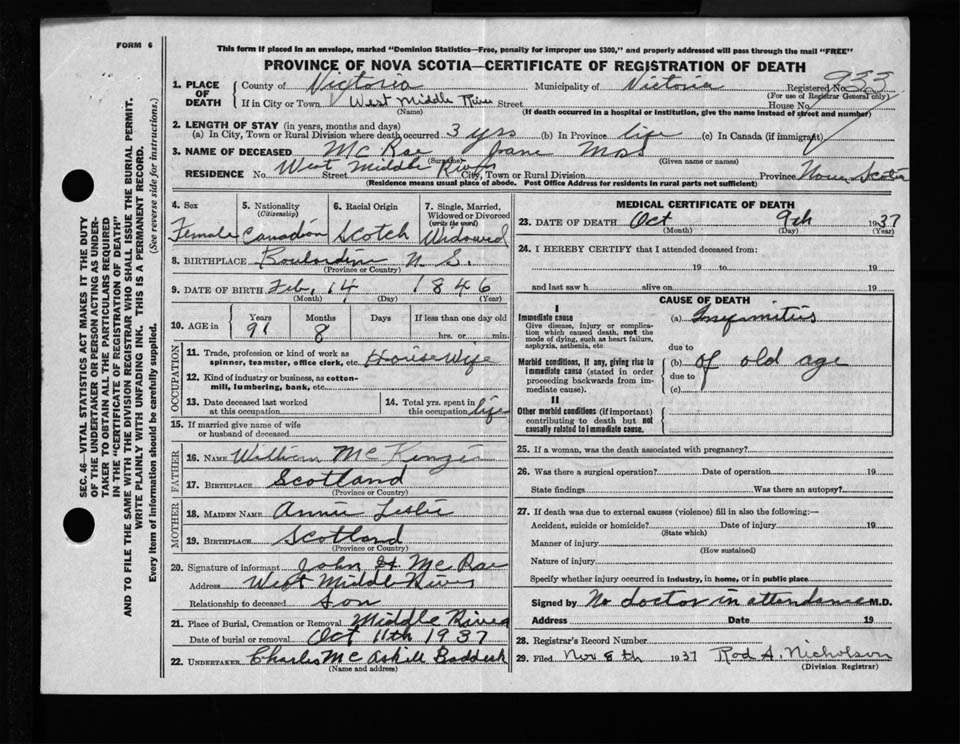 FORM 6
This form if placed in an envelope, marked "Dominion Statistics—Free, penalty for improper use $300," and properly addressed will pass through the mail "FREE"
PROVINCE OF NOVA SCOTIA—CERTIFICATE OF REGISTRATION OF DEATH
1. PLACE OF DEATH
County of Victoria Municipality of Victoria Registered No. 933
(For use of Registrar General only)
If in City or Town West Middle River Street House No.
(Name) (If death occurred in a hospital or institution, give the name instead of street and number)
2. LENGTH OF STAY (in years, months and days)
(a) In City, Town or Rural Division where death occurred 3 yrs (b) In Province life (c) In Canada (if immigrant)
3. NAME OF DECEASED Mc Rae Jane Moss
(Surname) (Given name or names)
RESIDENCE No. West Middle River Street City, Town or Rural Division Province Nova Scotia
(Residence means usual place of abode. Post Office Address for residents in rural parts not sufficient)
4. Sex Female
5. Nationality (Citizenship) Canadian
6. Racial Origin Scotch
7. Single, Married, Widowed or Divorced (write the word) Widowed
8. BIRTHPLACE N. S.
(Province or Country)
9. DATE OF BIRTH Feb. 14 1846
(Month) (Day) (Year)
10. AGE in Years Months Days If less than one day old
91 8 hrs. or min.
OCCUPATION
11. Trade, profession or kind of work as spinner, teamster, office clerk, etc. House Wife
12. Kind of industry or business, as cotton-mill, lumbering, bank, etc.
13. Date deceased last worked at this occupation
14. Total yrs. spent in this occupation life
15. If married give name of wife or husband of deceased
FATHER
16. NAME William Mc Kenzie
17. BIRTHPLACE Scotland
(Province or Country)
MOTHER
18. MAIDEN NAME Annie Leslie
19. BIRTHPLACE Scotland
(Province or Country)
20. Signature of informant John H Mc Rae
Address West Middle River
Relationship to deceased Son
21. Place of Burial, Cremation or Removal Middle River
Date of burial or removal Oct 11th 1937
22. UNDERTAKER Charles Mc Askill Baddeck
(Name and address)
MEDICAL CERTIFICATE OF DEATH
23. DATE OF DEATH Oct 9th 1937
(Month) (Day) (Year)
24. I HEREBY CERTIFY that I attended deceased from:
19 to 19
and last saw h alive on 19
CAUSE OF DEATH
I
Immediate cause (a) Infirmities
Give disease, injury or complication which caused death, not the mode of dying, such as heart failure, asphyxia, asthenia, etc.
due to
Morbid conditions, if any, giving rise to immediate cause (stated in order proceeding backwards from immediate cause).
(b) of old age
due to
(c)
II
Other morbid conditions (if important) contributing to death but not causally related to immediate cause.
25. If a woman, was the death associated with pregnancy?
26. Was there a surgical operation? Date of operation 19
State findings Was there an autopsy?
27. If death was due to external causes (violence) fill in also the following:—
Accident, suicide or homicide? Date of injury 19
(State which)
Manner of injury
(How sustained)
Nature of injury
Specify whether injury occurred in industry, in home, or in public place
Signed by No doctor in attendance M.D.
Address Date 19
28. Registrar's Record Number
29. Filed Nov 8th 1937 Rod A. Nicholson
(Division Registrar)
SEC. 46—VITAL STATISTICS ACT MAKES IT THE DUTY
OF THE UNDERTAKER OR PERSON ACTING AS UNDER-
TAKER TO OBTAIN ALL THE PARTICULARS REQUIRED
IN THE "CERTIFICATE OF REGISTRATION OF DEATH"
AND TO FILE THE SAME WITH THE DIVISION REGISTRAR WHO SHALL ISSUE THE BURIAL PERMIT.
WRITE PLAINLY WITH UNFADING INK. THIS IS A PERMANENT RECORD.
Every item of information should be carefully supplied. (See reverse side for instructions.)